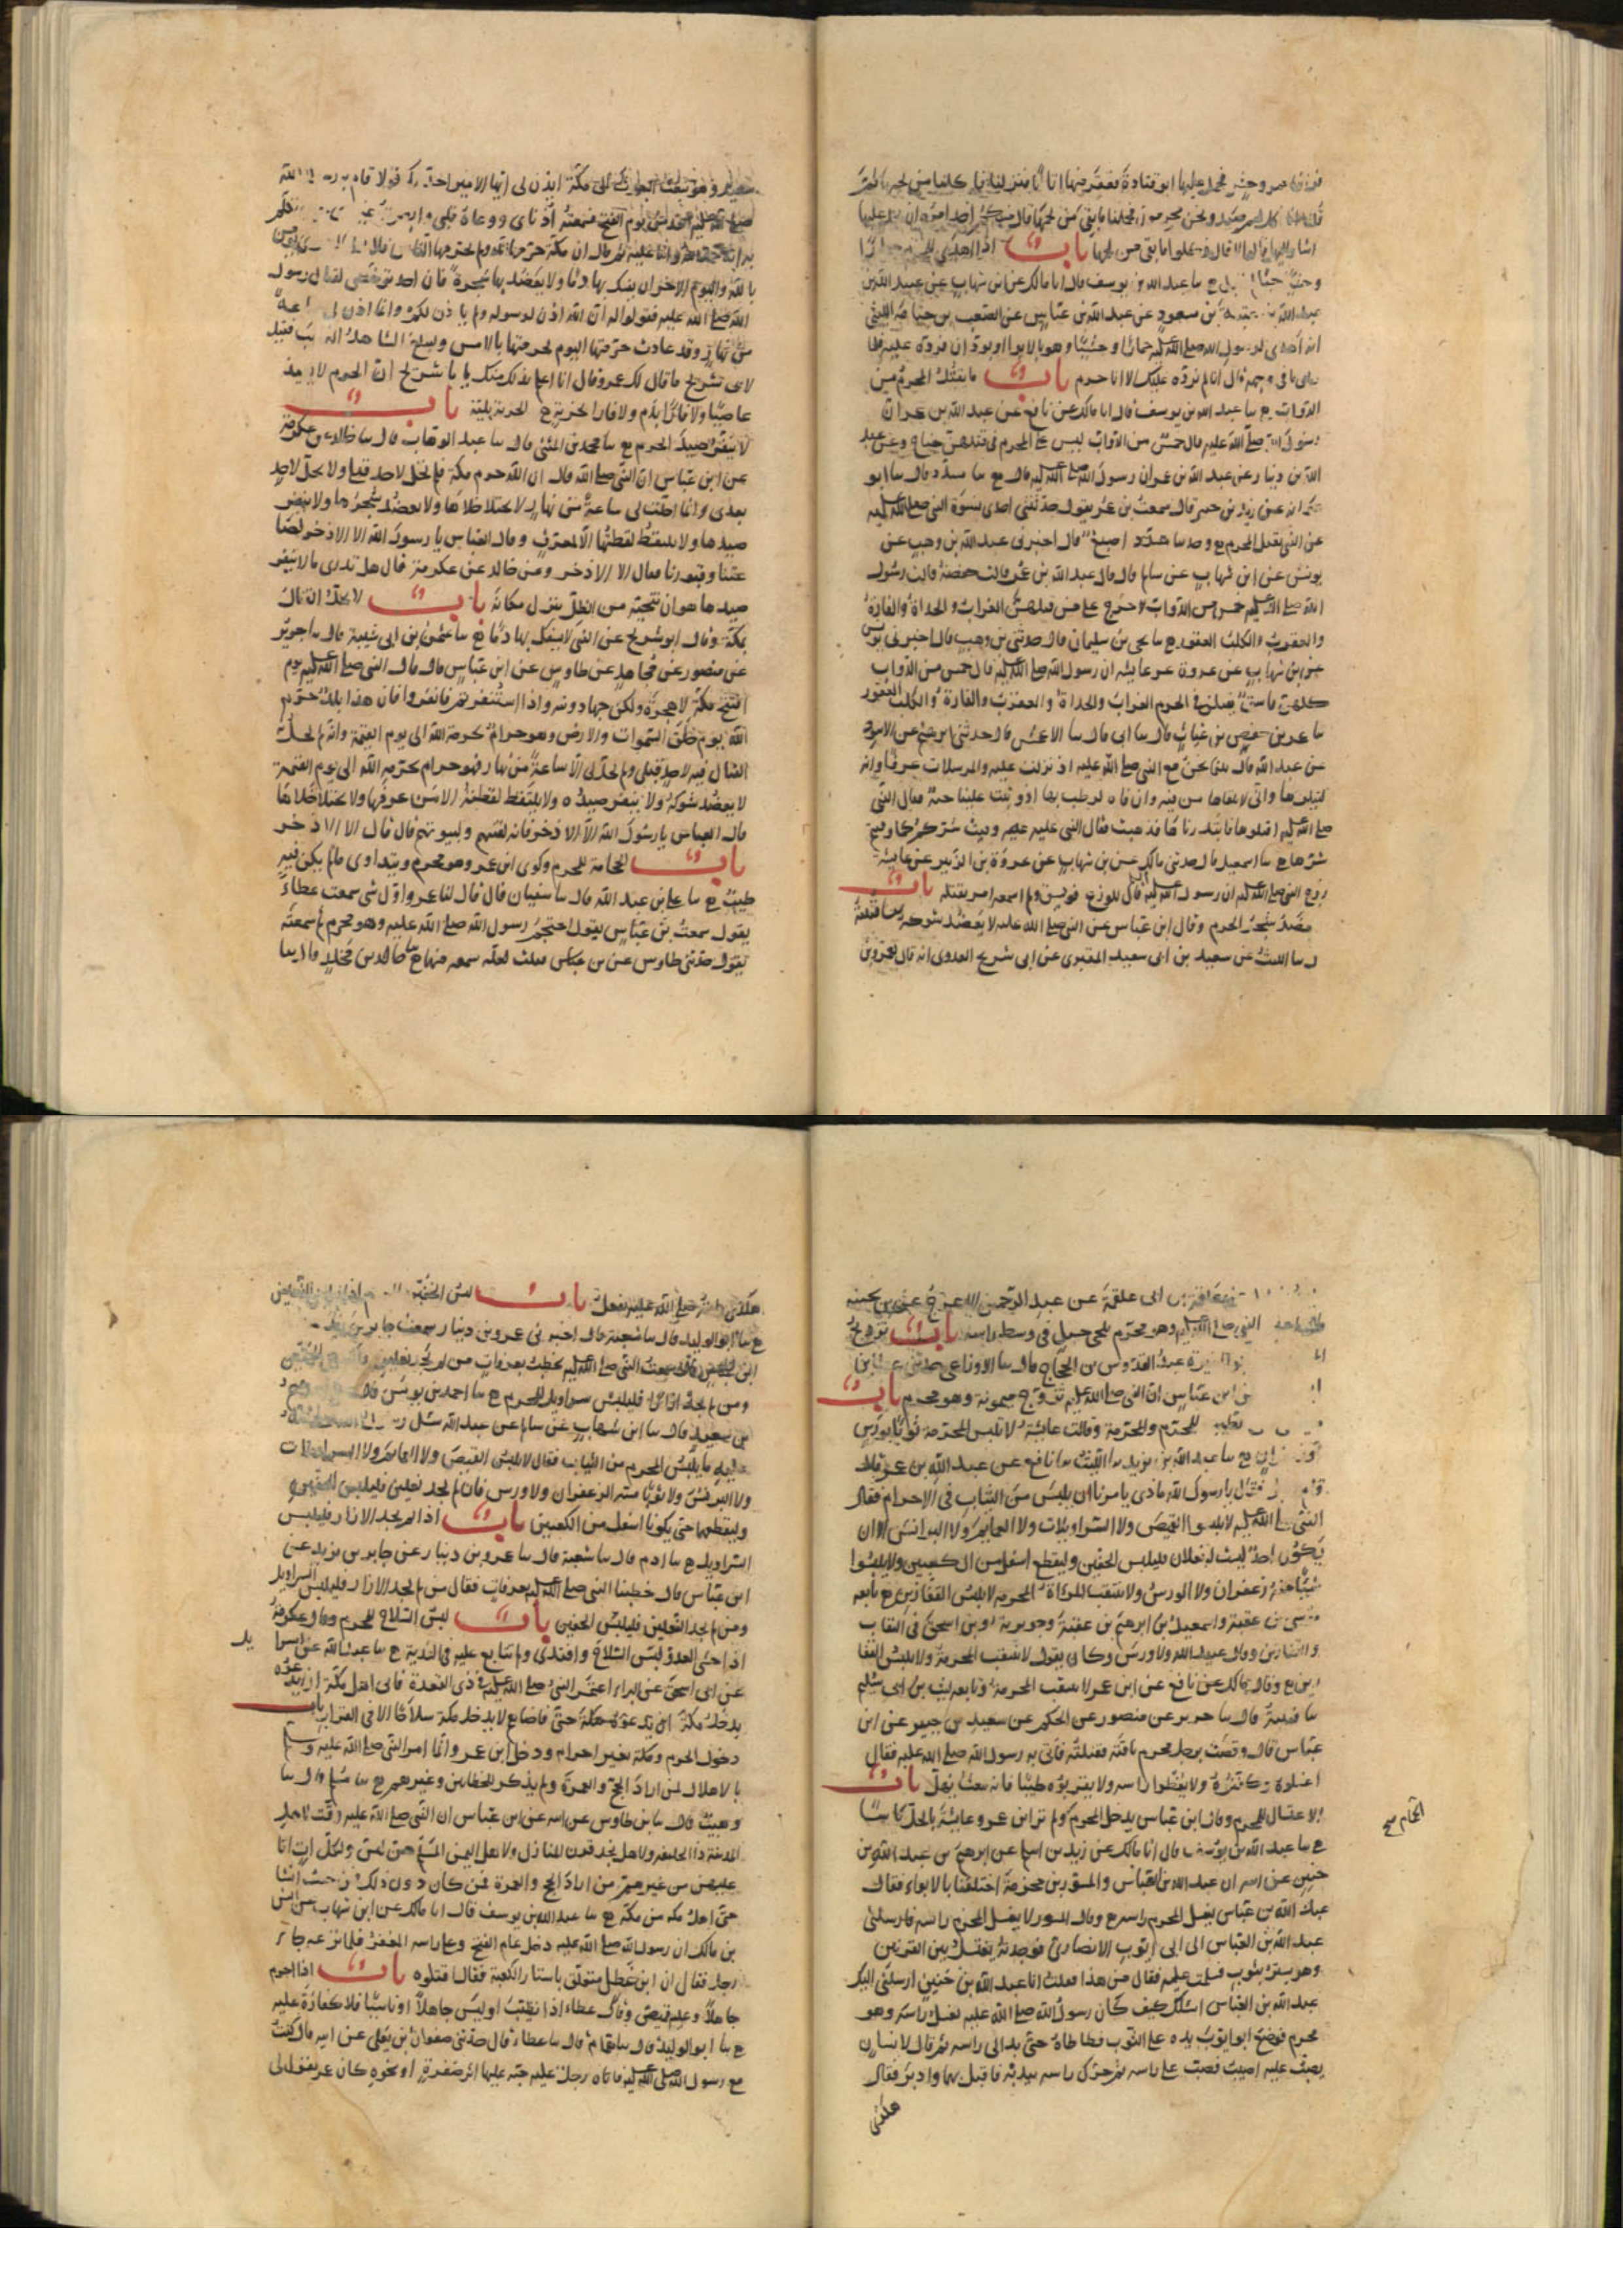 فحمل عليها ابو قتادة فعقر منها اتانا فنزلنا فاكلنا من لحمها ثم
قلنا اناكل لحم صيد ونحن محرمون فحملنا ما بقي من لحمها قال منكم احد امره ان يحمل عليها
اشار اليها قالوا لا قال فكلوا ما بقي من لحمها باب اذا اهدى للمحرم حمارا
وحشيا حيا عبد الله بن يوسف قال انا مالك عن ابن شهاب عن عبيد الله بن
عبد الله بن عتبة بن مسعود عن عبد الله بن عباس عن الصعب بن جثامة الليثي
انه اهدى لرسول الله صلى الله عليه حمارا وحشيا وهو بالابوا او بودان فرده عليه فلما
راى ما في وجهه قال انا لم نرده عليك الا انا حرم باب ما يقتل المحرم من
الدواب ح سا عبد الله بن يوسف قال انا مالك عن نافع عن عبد الله بن عمر ان
رسول الله صلى الله عليه قال خمس من الدواب ليس على المحرم في قتلهن جناح وعن عبد
الله بن دينار عن عبد الله بن عمر ان رسول الله صلى الله عليه قال ح سا مسدد قال سا ابو
عوانة عن زيد بن جبير قال سمعت بن عمر يقول حدثتني احدى نسوة النبي صلى الله عليه
عن النبي يقتل المحرم ح وحدسا اصبغ قال اخبرني عبد الله بن وهب عن
يونس عن ابن شهاب عن سالم قال قال عبد الله بن عمر قالت حفصة قالت رسول
الله صلى الله عليه خمس من الدواب لا حرج على من قتلهن الغراب والحداة والفارة
والعقرب والكلب العقور ح سا يحيى بن سليمان قال حدثني بن وهب قال اخبرني يونس
عن بن شهاب عن عروة عن عايشة ان رسول الله صلى الله عليه قال خمس من الدواب
كلهن فاسق يقتلن في الحرم الغراب والحداة والعقرب والفارة والكلب العقور
سا عمر بن حفص بن غياث قال سا ابي قال سا الاعمش قال حدثني ابرهيم عن الاسود
عن عبد الله قال بينا نحن مع النبي صلى الله عليه اذ نزلت عليه والمرسلات عرفا وانه
ليتلوها واني لاتلقاها من فيه وان فاه لرطب بها اذ وثبت علينا حية فقال النبي
صلى الله عليه اقتلوها فابتدرناها فذهبت فقال النبي عليه وقيت شركم كما وقيتم
شرها ح سا اسمعيل قال حدثني مالك عن بن شهاب عن عروة بن الزبير عن عايشة
زوج النبي صلى الله عليه ان رسول الله صلى الله عليه قال للوزغ فويسق ولم اسمعه امر بقتله باب
يعضد شجر الحرم وقال ابن عباس عن النبي صلى الله عليه لا يعضد شوكه سا قتيبة
سا الليث عن سعيد بن ابي سعيد المقبري عن ابي شريح العدوي انه قال لعمرو بن
سعيد وهو يبعث البعوث الى مكة ايذن لي ايها الامير احدثك قولا قام به رسول الله
صلى الله عليه الغد من يوم الفتح فسمعته اذناي ووعاه قلبي وابصرته عيناي حين تكلم
به انه حمد الله واثنى عليه ثم قال ان مكة حرمها الله ولم يحرمها الناس فلا يحل لامرئ يؤمن
بالله واليوم الاخر ان يسفك بها دما ولا يعضد بها شجرة فان احد ترخص لقتال رسول
الله صلى الله عليه فقولوا له ان الله اذن لرسوله ولم ياذن لكم وانما اذن لي ساعة
من نهار وقد عادت حرمتها اليوم كحرمتها بالامس وليبلغ الشاهد الغايب فقيل
لابي شريح ما قال لك عمرو قال انا اعلم بذلك منك يا با شريح ان الحرم لا يعيذ
عاصيا ولا فارا بدم ولا فارا بخربة ح الخربة بلية باب
لا ينفر صيد الحرم ح سا محمد بن المثنى قال سا عبد الوهاب قال سا خالد عن عكرمة
عن ابن عباس ان النبي صلى الله قال ان الله حرم مكة فلم تحل لاحد قبلي ولا تحل لاحد
بعدي وانما احلت لي ساعة من نهار لا يختلا خلاها ولا يعضد شجرها ولا ينفر
صيدها ولا يلتقط لقطتها الا لمعرف وقال العباس يا رسول الله الا الاذخر لصا
غتنا وقبورنا فقال الا الاذخر وعن خالد عن عكرمة قال هل تدري ما لا ينفر
صيدها هو ان تنحيه من الظل ينزل مكانه باب لا يحل القتال
بمكة وقال ابو شريح عن النبي لا يسفك بها دما ح سا عثمن بن ابي شيبة قال سا جرير
عن منصور عن مجاهد عن طاوس عن ابن عباس قال قال النبي صلى الله عليه يوم
افتتح مكة لا هجرة ولكن جهاد ونية واذا استنفرتم فانفروا فان هذا بلد حرم
الله يوم خلق السموات والارض وهو حرام بحرمة الله الى يوم القيمة وانه لم يحل
القتال فيه لاحد قبلي ولم يحل لي الا ساعة من نهار فهو حرام بحرمة الله الى يوم القيمة
لا يعضد شوكه ولا ينفر صيده ولا يلتقط لقطته الا من عرفها ولا يختلا خلاها
قال العباس يا رسول الله الا الاذخر فانه لقينهم ولبيوتهم قال قال الا الاذخر
باب الحجامة للمحرم وكوى ابن عمر وهو محرم ويتداوى ما لم يكن فيه
طيب ح سا علي بن عبد الله قال سا سفيان قال قال لنا عمرو اول شي سمعت عطاء
يقول سمعت بن عباس يقول احتجم رسول الله صلى الله عليه وهو محرم ثم سمعته
يقول حدثني طاوس عن بن عباس فقلت لعله سمعه منهما ح سا خالد بن مخلد قال سا
علقمة بن ابي علقمة عن عبد الرحمن الاعرج عن بن بحينة
النبي صلى الله عليه وهو محرم بلحي جمل في وسط راسه باب تزويج
المغيرة عبد القدوس بن الحجاج قال سا الاوزاعي حدثني عطاء بن
عن ابن عباس ان النبي صلى الله عليه تزوج ميمونة وهو محرم باب
الطيب للمحرم والمحرمة وقالت عايشة لا تلبس المحرمة ثوبا بورس
او زعفران ح سا عبد الله بن يزيد سا الليث سا نافع عن عبد الله بن عمر قال
قام رجل فقال يا رسول الله ماذا يامرنا ان نلبس من الثياب في الاحرام فقال
النبي صلى الله عليه لا تلبسوا القميص ولا السراويلات ولا العمايم ولا البرانس الا ان
يكون احد ليست له نعلان فليلبس الخفين وليقطع اسفل من الكعبين ولا تلبسوا
شيئا مسه زعفران ولا الورس ولا تنتقب المراة المحرمة ولا تلبس القفازين ح تابعه
موسى بن عقبة واسمعيل بن ابرهيم بن عقبة وجويرية وبن اسحق في النقاب
والقفازين وقال عبيد الله ولا ورس وكان يقول لا تنتقب المحرمة ولا تلبس القفا
زين ح وقال مالك عن نافع عن ابن عمر لا تنتقب المحرمة وتابعه ليث بن ابي سليم
سا قتيبة قال سا جرير عن منصور عن الحكم عن سعيد بن جبير عن ابن
عباس قال وقصت برجل محرم ناقته فقتلته فاتي به رسول الله صلى الله عليه فقال
اغسلوه وكفنوه ولا تغطوا راسه ولا تقربوه طيبا فانه يبعث يهل باب
الاغتسال للمحرم وقال ابن عباس يدخل المحرم ولم ير ابن عمر وعايشة بالحك باسا
الحمام صح
ح سا عبد الله بن يوسف قال انا مالك عن زيد بن اسلم عن ابرهيم بن عبد الله بن
حنين عن ابيه ان عبد الله بن العباس والمسور بن مخرمة اختلفا بالابواء فقال
عبد الله بن عباس يغسل المحرم راسه وقال المسور لا يغسل المحرم راسه فارسلني
عبد الله بن العباس الى ابي ايوب الانصاري فوجدته يغتسل بين القرنين
وهو يستر بثوب فسلمت عليه فقال من هذا فقلت انا عبد الله بن حنين ارسلني اليك
عبد الله بن العباس اسئلك كيف كان رسول الله صلى الله عليه يغسل راسه وهو
محرم فوضع ابو ايوب يده على الثوب فطاطاه حتى بدا لي راسه ثم قال لانسان
يصب عليه اصبب فصب على راسه ثم حرك راسه بيديه فاقبل بهما وادبر فقال
هكذى
هكذى رايته صلى الله عليه يفعل باب لبس الخفين للمحرم اذا لم يجد النعلين
ح سا ابو الوليد قال سا شعبة قال اخبرني عمرو بن دينار سمعت جابر بن زيد
ابن عباس قال سمعت النبي صلى الله عليه يخطب بعرفات من لم يجد نعلين فليلبس الخفين
ومن لم يجد ازارا فليلبس سراويل للمحرم ح سا احمد بن يونس قال
بن سعد قال سا ابن شهاب عن سالم عن عبد الله سئل رسول الله صلى الله
عليه ما يلبس المحرم من الثياب فقال لا يلبس القميص ولا العمايم ولا السراويلات
ولا البرنس ولا ثوبا مسه الزعفران ولا ورس فان لم يجد نعلين فليلبس الخفين
وليقطعهما حتى يكونا اسفل من الكعبين باب اذا لم يجد الازار فليلبس
السراويل ح سا ادم قال سا شعبة قال سا عمرو بن دينار عن جابر بن يزيد عن
ابن عباس قال خطبنا النبي صلى الله عليه بعرفات فقال من لم يجد الازار فليلبس السراويل
ومن لم يجد النعلين فليلبس الخفين باب لبس السلاح للمحرم وقال عكرمة
اذا خشي العدو لبس السلاح وافتدى ولم يتابع عليه في الفدية ح سا عبيد الله عن اسرا
يل
عن ابي اسحق عن البراء اعتمر النبي صلى الله عليه في ذي القعدة فابى اهل مكة ان يدعوه
يدخل مكة حتى قاضاهم لا يدخل مكة سلاحا الا في القراب باب
دخول الحرم ومكة بغير احرام ودخل ابن عمر وانما امر النبي صلى الله عليه وسلم
بالاهلال لمن اراد الحج والعمرة ولم يذكر للحطابين وغيرهم ح سا مسلم قال سا
وهيب قال سا بن طاوس عن ابيه عن ابن عباس ان النبي صلى الله عليه وقت لاهل
المدينة ذا الحليفة ولاهل نجد قرن المنازل ولاهل اليمن يلملم هن لهن ولكل ات اتا
عليهن من غيرهم من اراد الحج والعمرة فمن كان دون ذلك فمن حيث انشا
حتى اهل مكة من مكة ح سا عبد الله بن يوسف قال انا مالك عن ابن شهاب عن انس
بن مالك ان رسول الله صلى الله عليه دخل عام الفتح وعلى راسه المغفر فلما نزعه جا
رجل فقال ان ابن خطل متعلق باستار الكعبة فقال اقتلوه باب اذا احرم
جاهلا وعليه قميص وقال عطاء اذا تطيب او لبس جاهلا او ناسيا فلا كفارة عليه
ح سا ابو الوليد قال سا همام قال سا عطاء قال حدثني صفوان بن يعلى عن ابيه قال كنت
مع رسول الله صلى الله عليه فاتاه رجل عليه جبة عليها اثر صفرة او نحوه كان عمر يقول لي